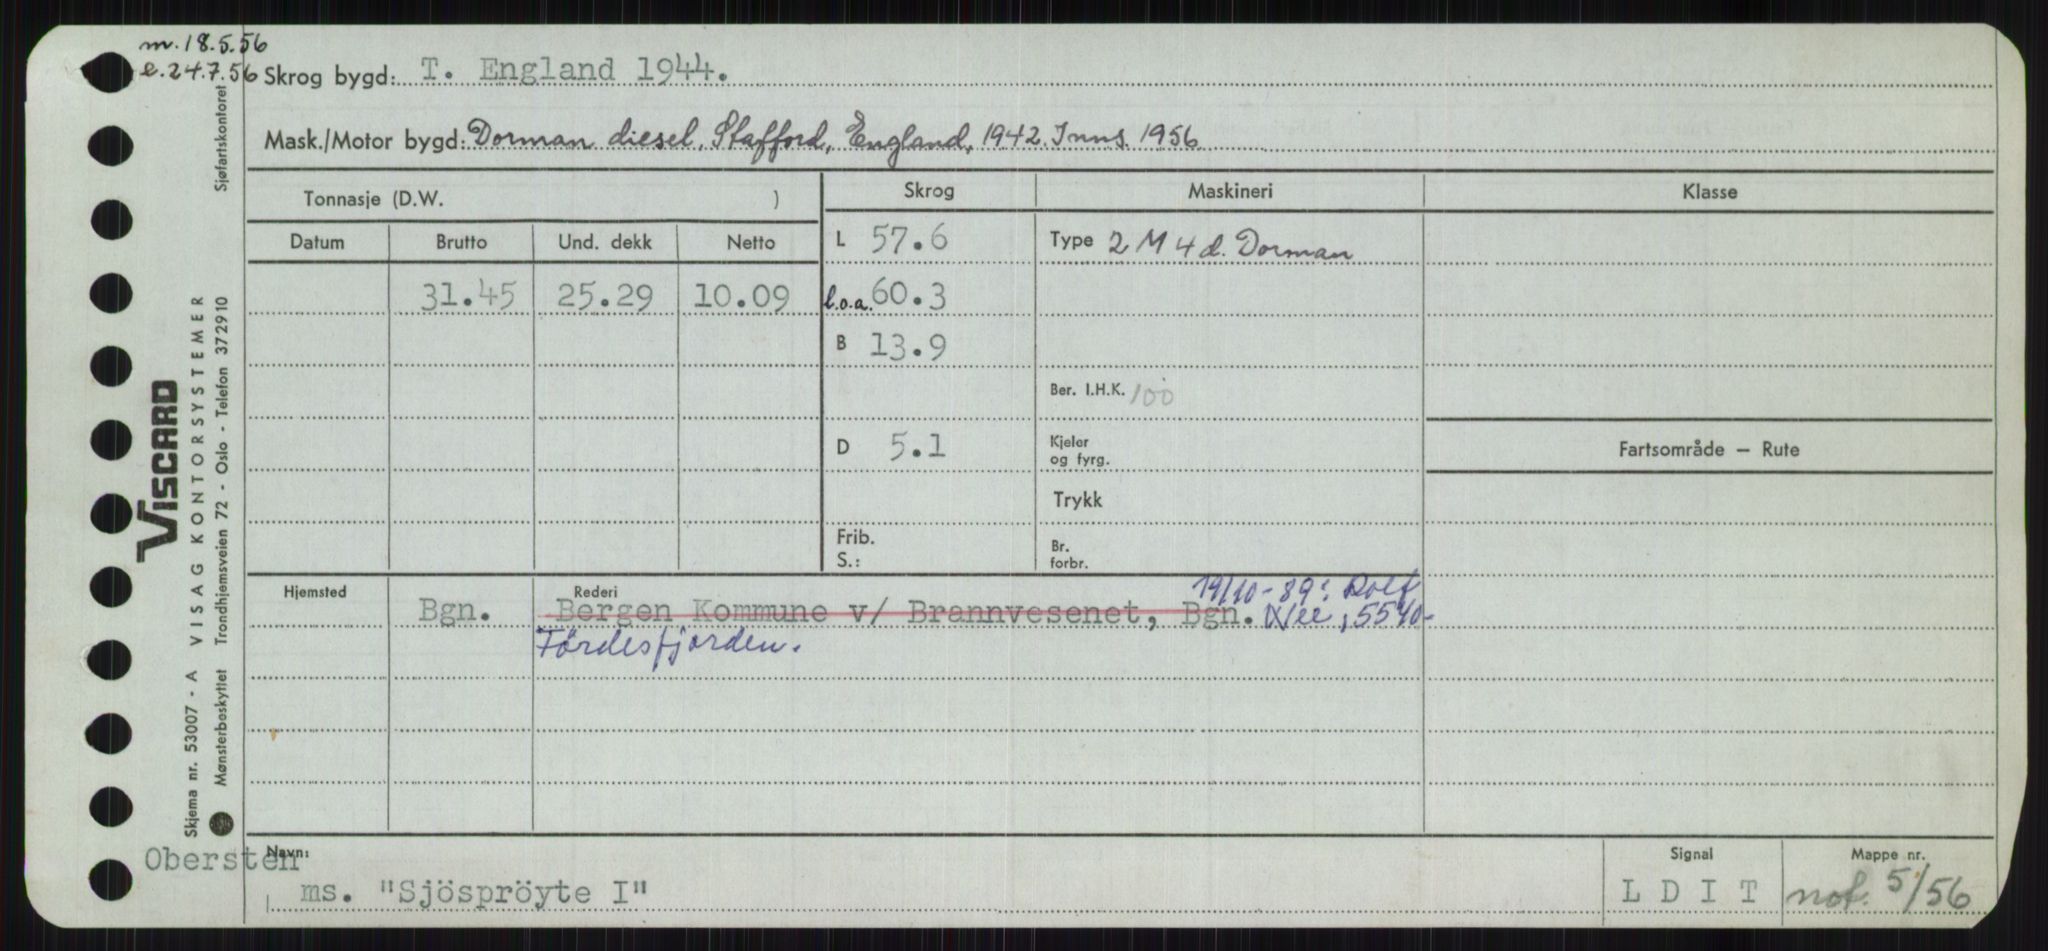 m. 18.5.56
e. 24.7.56 Skrog bygd: T. England 1944.
Mask./Motor bygd: Dorman diesel, Stafford, England, 1942. Inns. 1956
Tonnasje (D.W. )
Skrog
Maskineri
Klasse
Datum
Brutto
Und. dekk
Netto
31.45
25.29
10.09
L 57.6
l.o.a. 60.3
B 13.9
D 5.1
Frib.
S.:
Type 2 M 4 d. Dorman
Ber. I.H.K. 100
Kjeler
og fyrg.
Trykk
Br.
forbr.
Fartsområde — Rute
Hjemsted
Rederi
19/10-89: Rolf
Bgn. Bergen Kommune v/ Brannvesenet, Bgn. 5540-
Fördesfjorden.
Obersten
Navn:
ms. "Sjöspröyte I"
Signal
L D I T
Mappe nr.
not. 5/56
VISCARD
Skjema nr. 53007 - A VISAG KONTORSYSTEMER
Mønsterbeskyttet Trondhjemsveien 72 - Oslo - Telefon 372910
Sjøfartskontoret